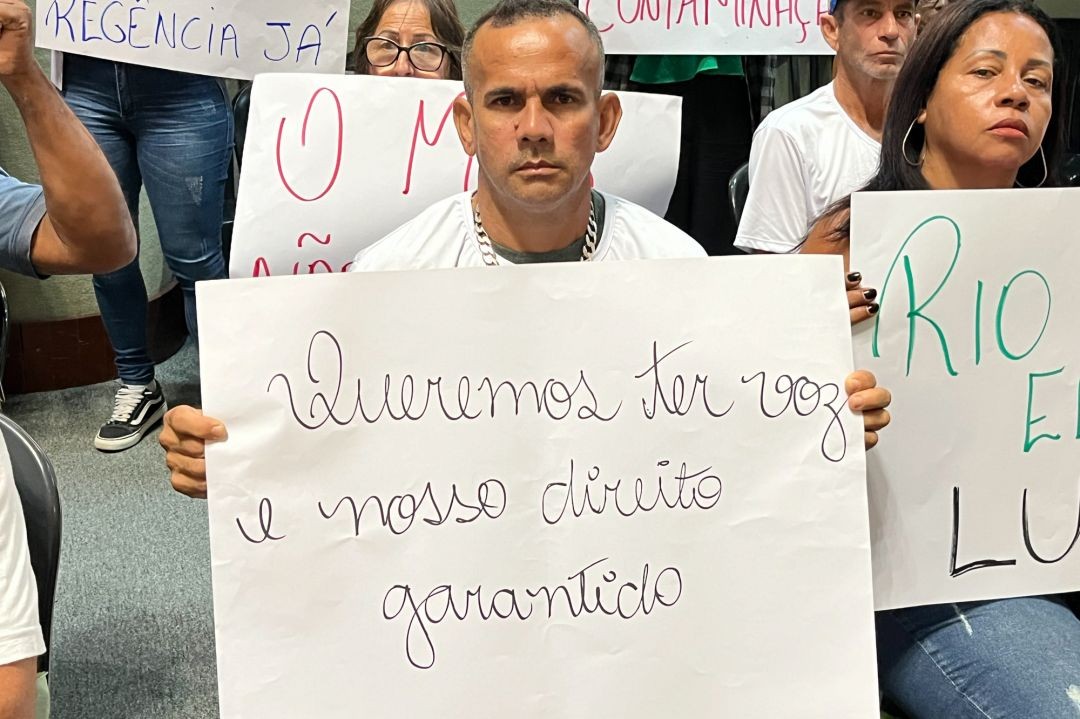 REGÊNCIA JÁ
CONTAMINAÇ
O M
NÃO
Queremos ter voz
e nosso direito
garantido
RIO
E
LU